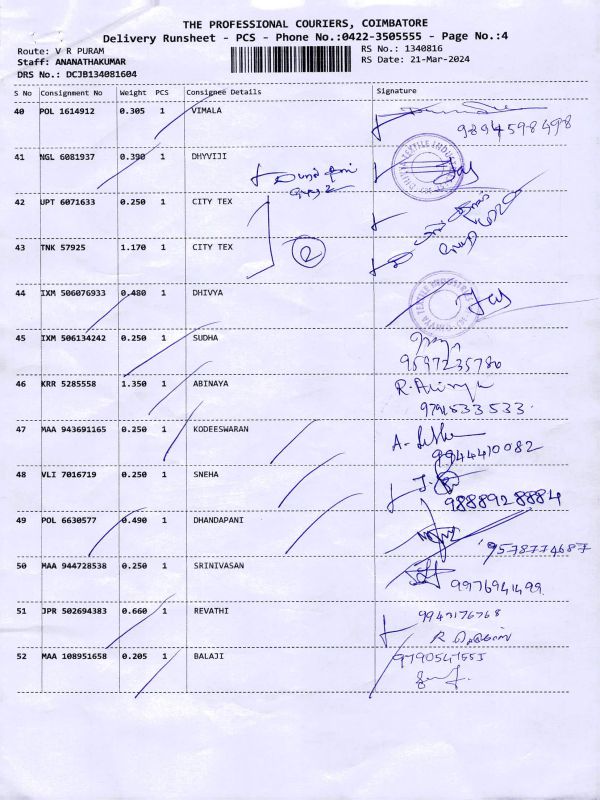 THE PROFESSIONAL COURIERS, COIMBATORE
Delivery Runsheet - PCS - Phone No.:0422-3505555 - Page No.:4
Route: V R PURAM
RS No.: 1340816
Staff: ANANATHAKUMAR
RS Date: 21-Mar-2024
DRS No.: DCJB134081604
S No Consignment No Weight PCS Consignee Details Signature
40 POL 1614912 0.305 1 VIMALA
9894598498
41 NGL 6081937 0.390 1 DHYVIJI
42 UPT 6071633 0.250 1 CITY TEX
43 TNK 57925 1.170 1 CITY TEX
2
44 IXM 506076933 0.480 1 DHIVYA
45 IXM 506134242 0.250 1 SUDHA
9597235780
46 KRR 5285558 1.350 1 ABINAYA
R. Abinaya
9791533533.
47 MAA 943691165 0.250 1 KODEESWARAN
9944410082
48 VLI 7016719 0.250 1 SNEHA
9888928884
49 POL 6630577 0.490 1 DHANDAPANI
9578774687
50 MAA 944728538 0.250 1 SRINIVASAN
9976941499
51 JPR 502694383 0.660 1 REVATHI
52 MAA 108951658 0.205 1 BALAJI